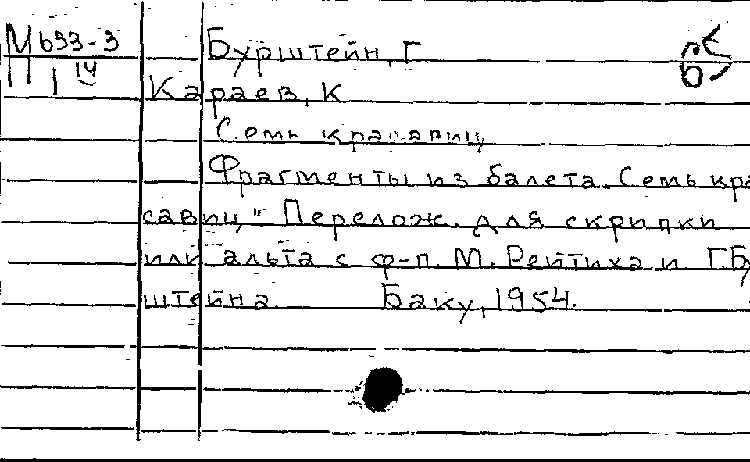 М 633-3
IV
Бурштейн, Г
Караев, К
Семь красавиц
Фрагменты из балета. Семь кра
савиц" Перелож. для скрипки
или альта с ф-п. М. Рейтиха и Г.Бу
штейна Баку, 1954.